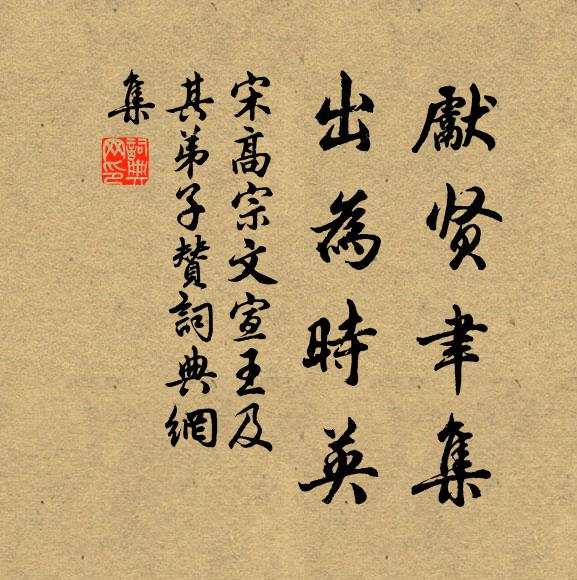 獻贤聿集
出為時英
宋高宗文宣王及
其弟子贊詞典網
集
詞典
网印